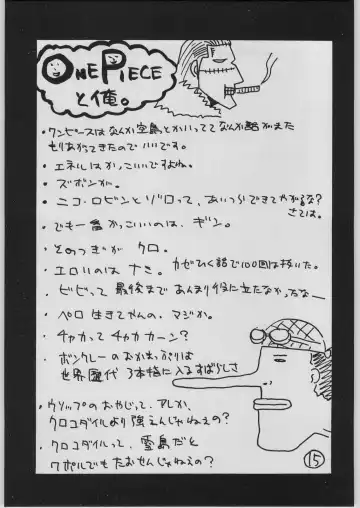 ONE PIECE
と俺。
・ワンピースはなんか空島とかいってて なんか話がまた
もりあがってきたのでいいです。
・エネルはかっこいいですよね。
・ズボンが。
・ニコ・ロビンとゾロって、あいつらできてやがるな?
さては。
・でも一番かっこいいのは、ギン。
・そのつぎが クロ。
・エロいのは ナミ。カゼひく話で100回は抜いた。
・ビビって 最後まで あんまり役に立たなかったなー
・ペロ 生きてやんの。マジか。
・チャカって チャカ カーン?
・ボンクレーのおかまっぷりは
世界歴代 3本指に入るすばらしさ
・ウソップのおやじって、アレか、
クロコダイルより強えんじゃねえの?
・クロコダイルって、雪島だと
ワポルでもたおせんじゃねえの?
15